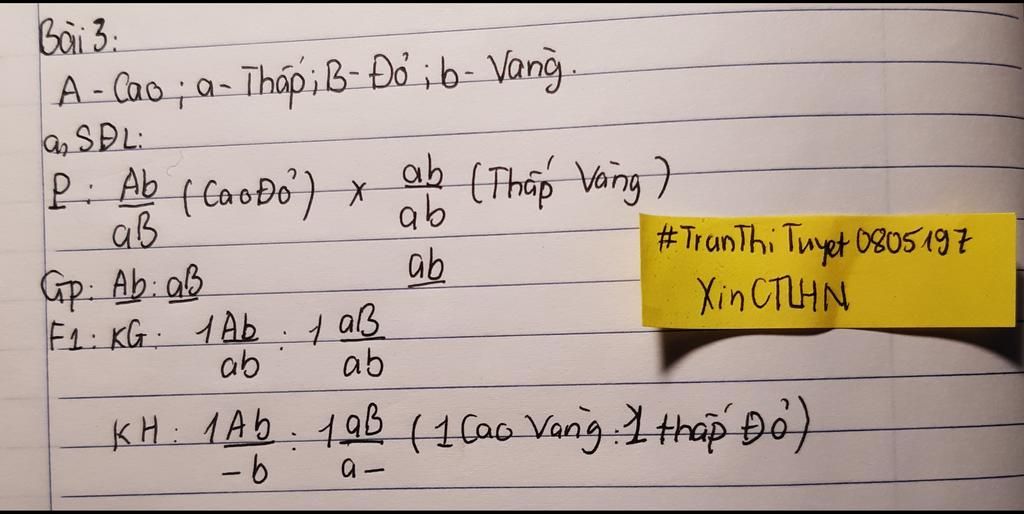 Bài 3:
A - Cao ; a - Thấp ; B - Đỏ ; b - Vàng.
a, SĐL:
P : Ab/aB (Cao Đỏ) x ab/ab (Thấp Vàng)
Gp: Ab : aB ab
F1 : KG : 1 Ab/ab : 1 aB/ab
KH : 1 Ab/-b : 1 aB/a- (1 Cao Vàng : 1 thấp Đỏ)
#TranThiTuyet0805197
Xin CTLHN